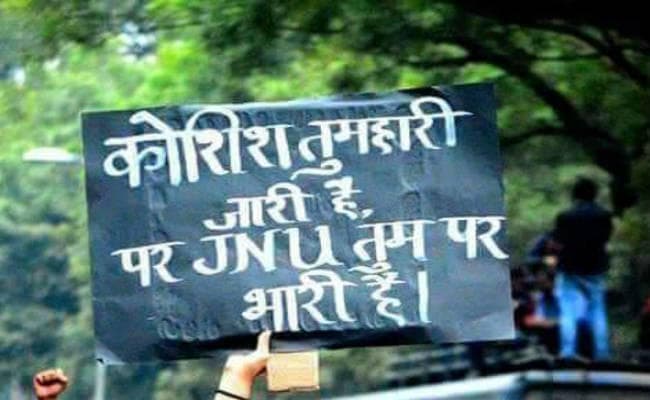 कोशिश तुमहारी
जारी है,
पर JNU तुम पर
भारी है।